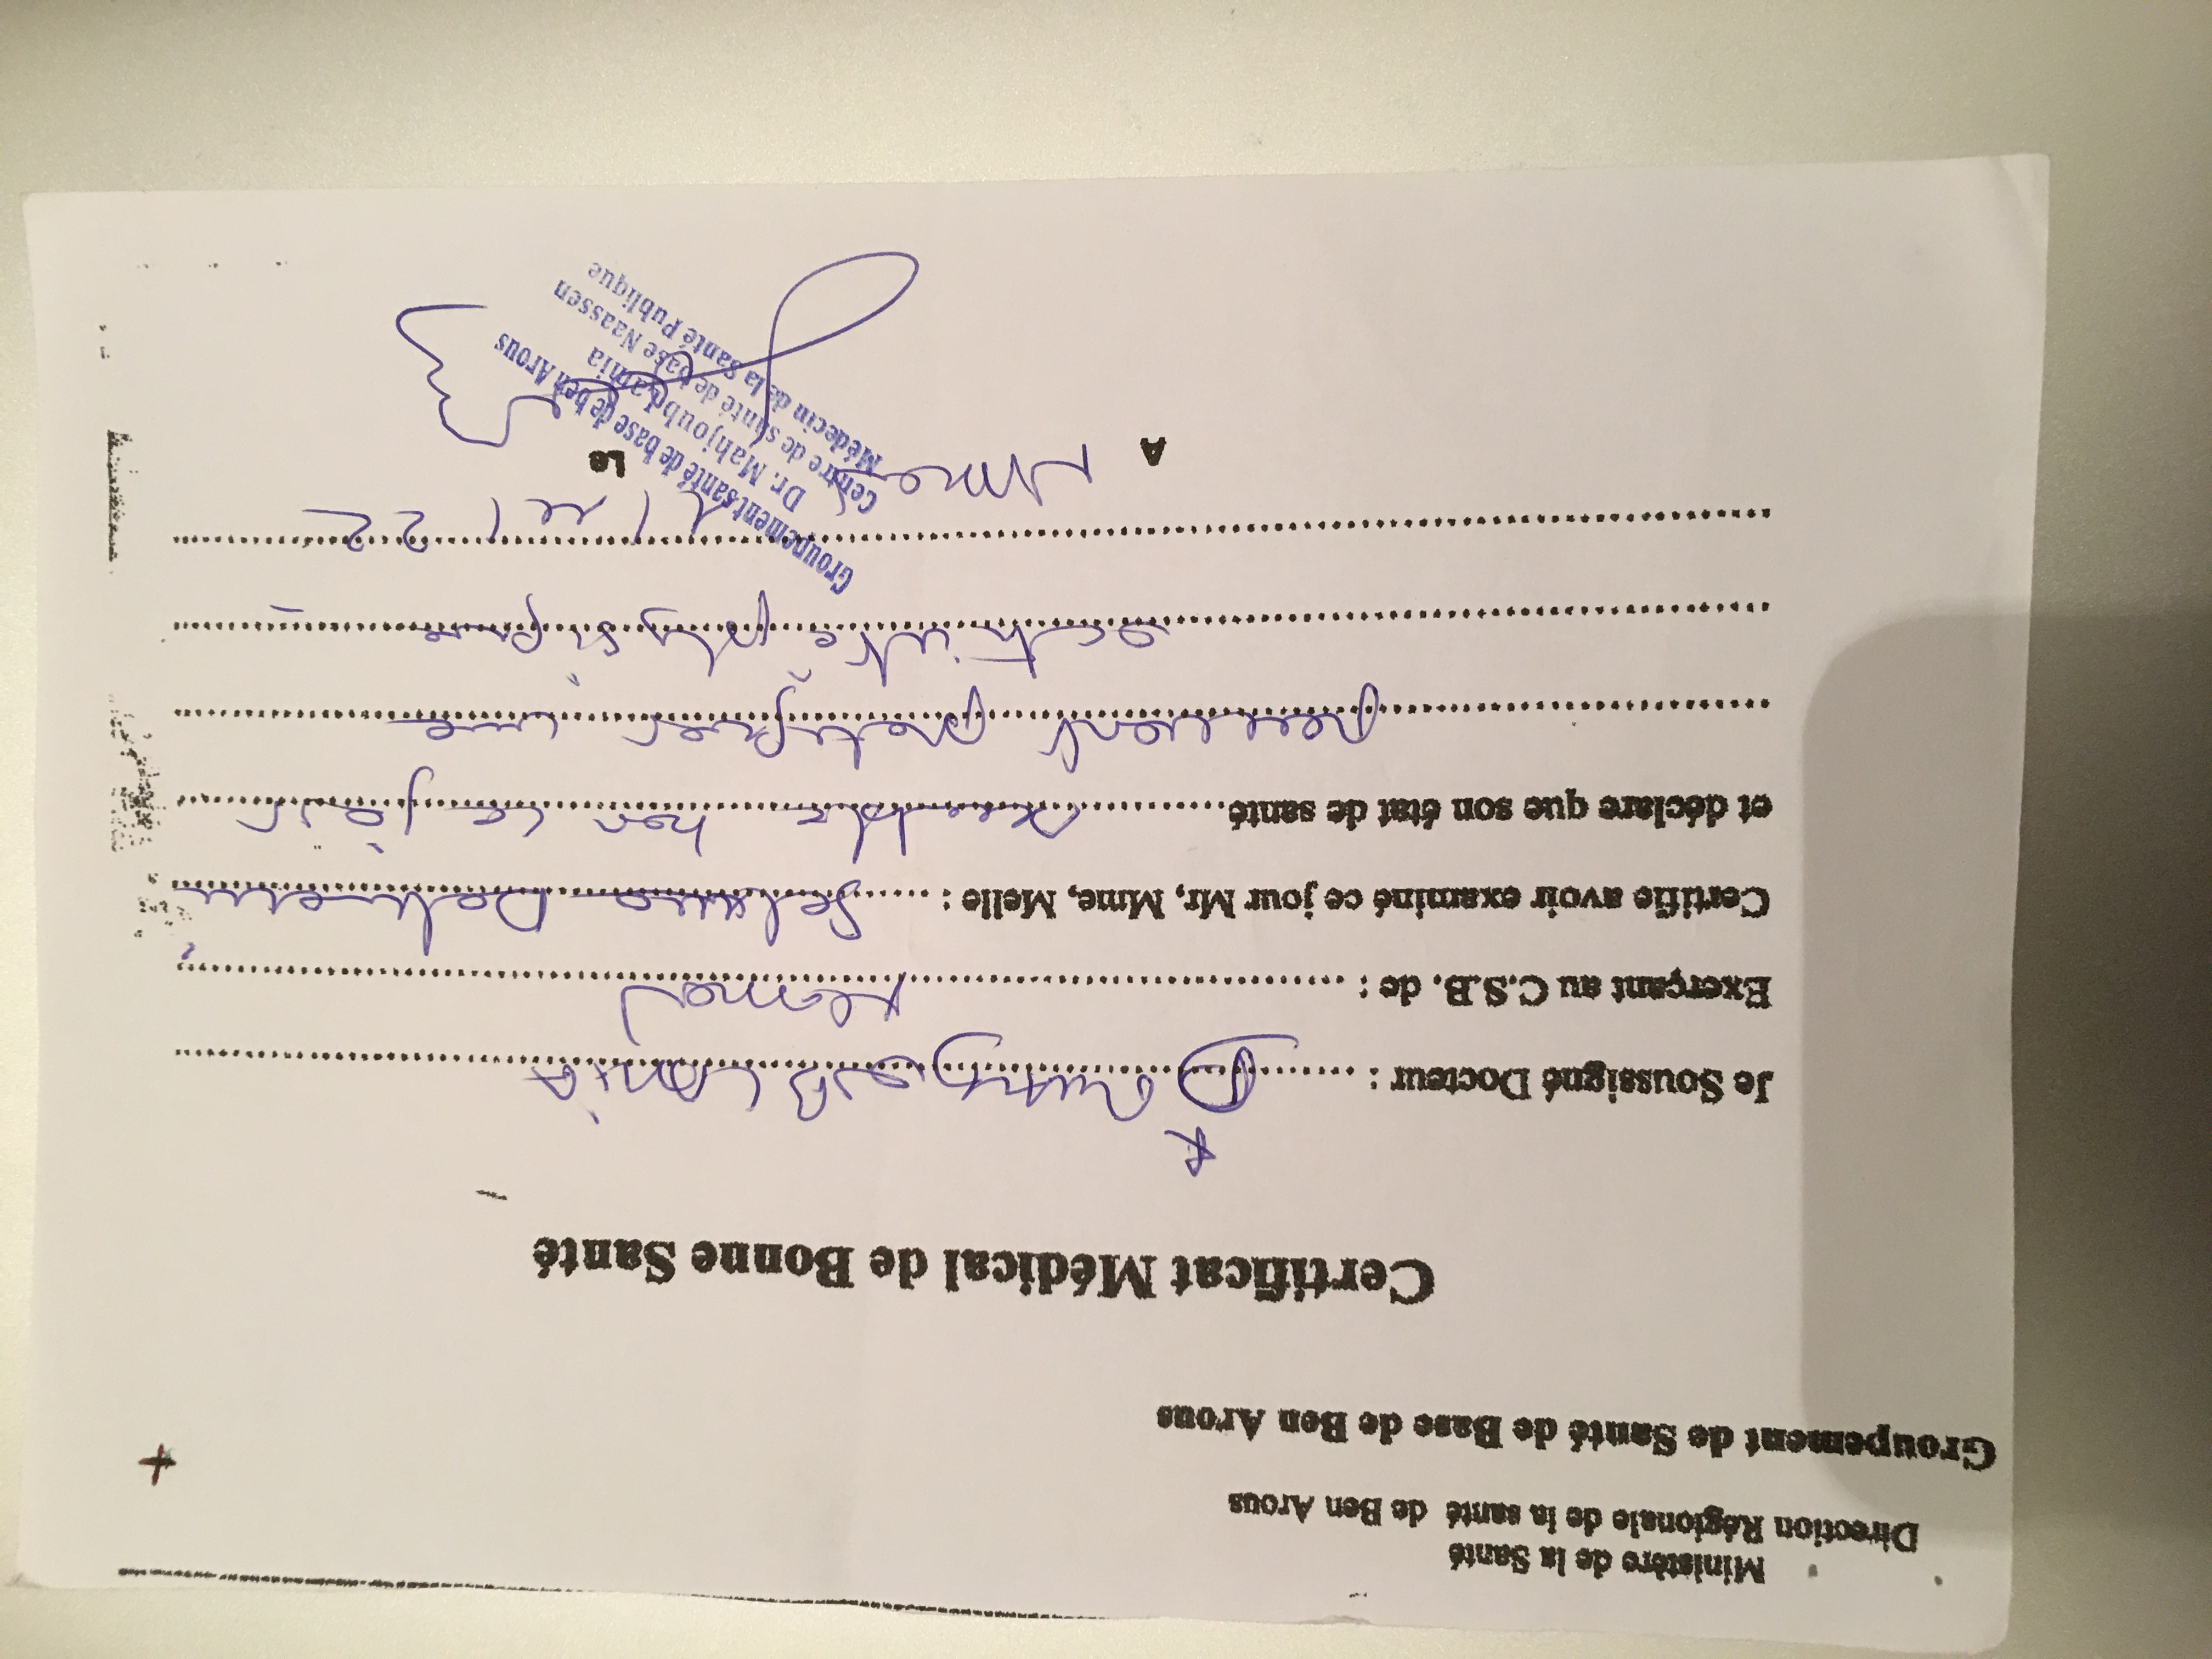 Ministère de la Santé
Direction Régionale de la santé de Ben Arous
Groupement de Santé de Base de Ben Arous
Certificat Médical de Bonne Santé
Je Soussigné Docteur : Lamia
Exerçant au C.S.B. de :
Certifie avoir examiné ce jour Mr, Mme, Melle : Selima
et déclare que son état de santé
pratiquer une
activité physique
A Le
Groupement santé de base de ben Arous
Dr. Mahjoub Lamia
Centre de santé de base Naassen
Médecin de la Santé Publique